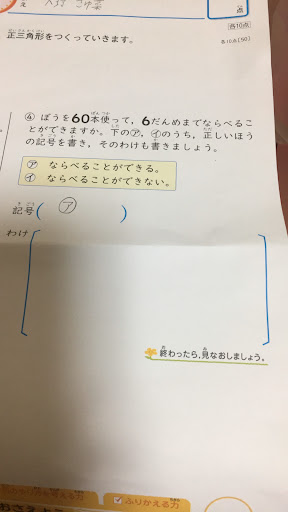 え
点
各10点
正三角形をつくっていきます。
各10点【50】
④ ぼうを60本使って，6だんめまでならべるこ
とができますか。下の㋐，㋑のうち，正しいほう
の記号を書き，そのわけも書きましょう。
㋐ ならべることができる。
㋑ ならべることができない。
記号( ㋐ )
わけ
終わったら，見なおしましょう。
考える力
ふりかえる力